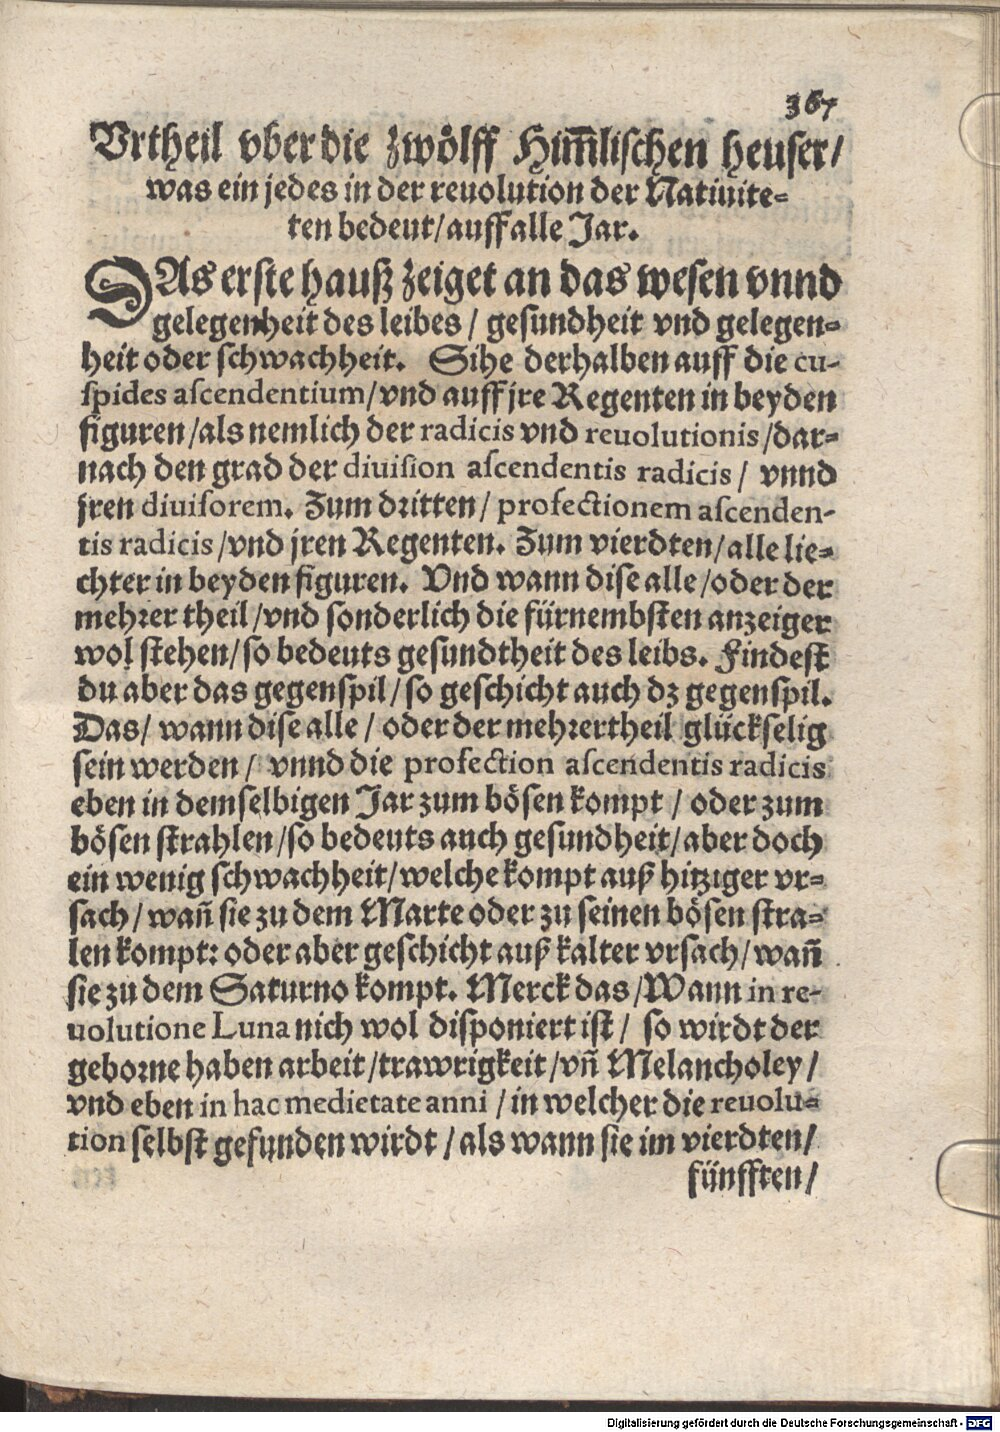 367
Vrtheil vber die zwölff Him̄lischen heuser/
was ein jedes in der reuolution der Natiuite-
ten bedeut/auff alle Jar.
DAs erste hauß zeiget an das wesen vnnd
gelegenheit des leibes / gesundheit vnd gelegen-
heit oder schwachheit. Sihe derhalben auff die cu-
spides ascendentium/vnd auff jre Regenten in beyden
figuren/als nemlich der radicis vnd reuolutionis/dar-
nach den grad der diuision ascendentis radicis/ vnnd
jren diuisorem. Zum dritten/ profectionem ascenden-
tis radicis/vnd jren Regenten. Zum vierdten/alle lie-
chter in beyden figuren. Vnd wann dise alle/oder der
mehrer theil/vnd sonderlich die fürnembsten anzeiger
wol stehen/so bedeuts gesundtheit des leibs. Findest
du aber das gegenspil/so geschicht auch dz gegenspil.
Das/ wann dise alle / oder der mehrertheil glückselig
sein werden / vnnd die profection ascendentis radicis
eben in demselbigen Jar zum bösen kompt / oder zum
bösen strahlen/so bedeuts auch gesundheit/aber doch
ein wenig schwachheit/welche kompt auß hitziger vr-
sach/wañ sie zu dem Marte oder zu seinen bösen stra-
len kompt: oder aber geschicht auß kalter vrsach/wañ
sie zu dem Saturno kompt. Merck das/Wann in re-
uolutione Luna nich wol disponiert ist/ so wirdt der
geborne haben arbeit/trawrigkeit/vñ Melancholey/
vnd eben in hac medietate anni/in welcher die reuolu-
tion selbst gefunden wirdt/als wann sie im vierdten/
fünfften/
Digitalisierung gefördert durch die Deutsche Forschungsgemeinschaft - DFG